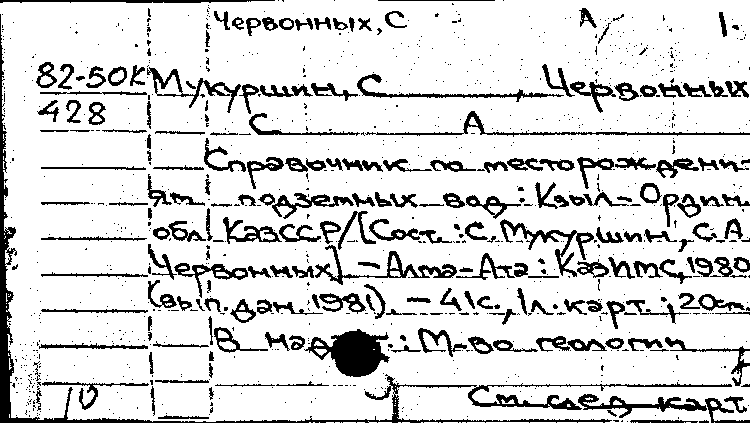 Червонных, С А 1.
82-50К Мукуршин, С , Червонных
428 С А
Справочник по месторождени-
ям подземных вод : Кзыл-Ордин.
обл. КазССР/[Сост. : С. Мукуршин, С.А
Червонных] - Алма-Ата : КазИМС, 1980
(вып. дан. 1981). - 41с., 1л. карт. ; 20см.
В : М-во геологии
10 См. след карт